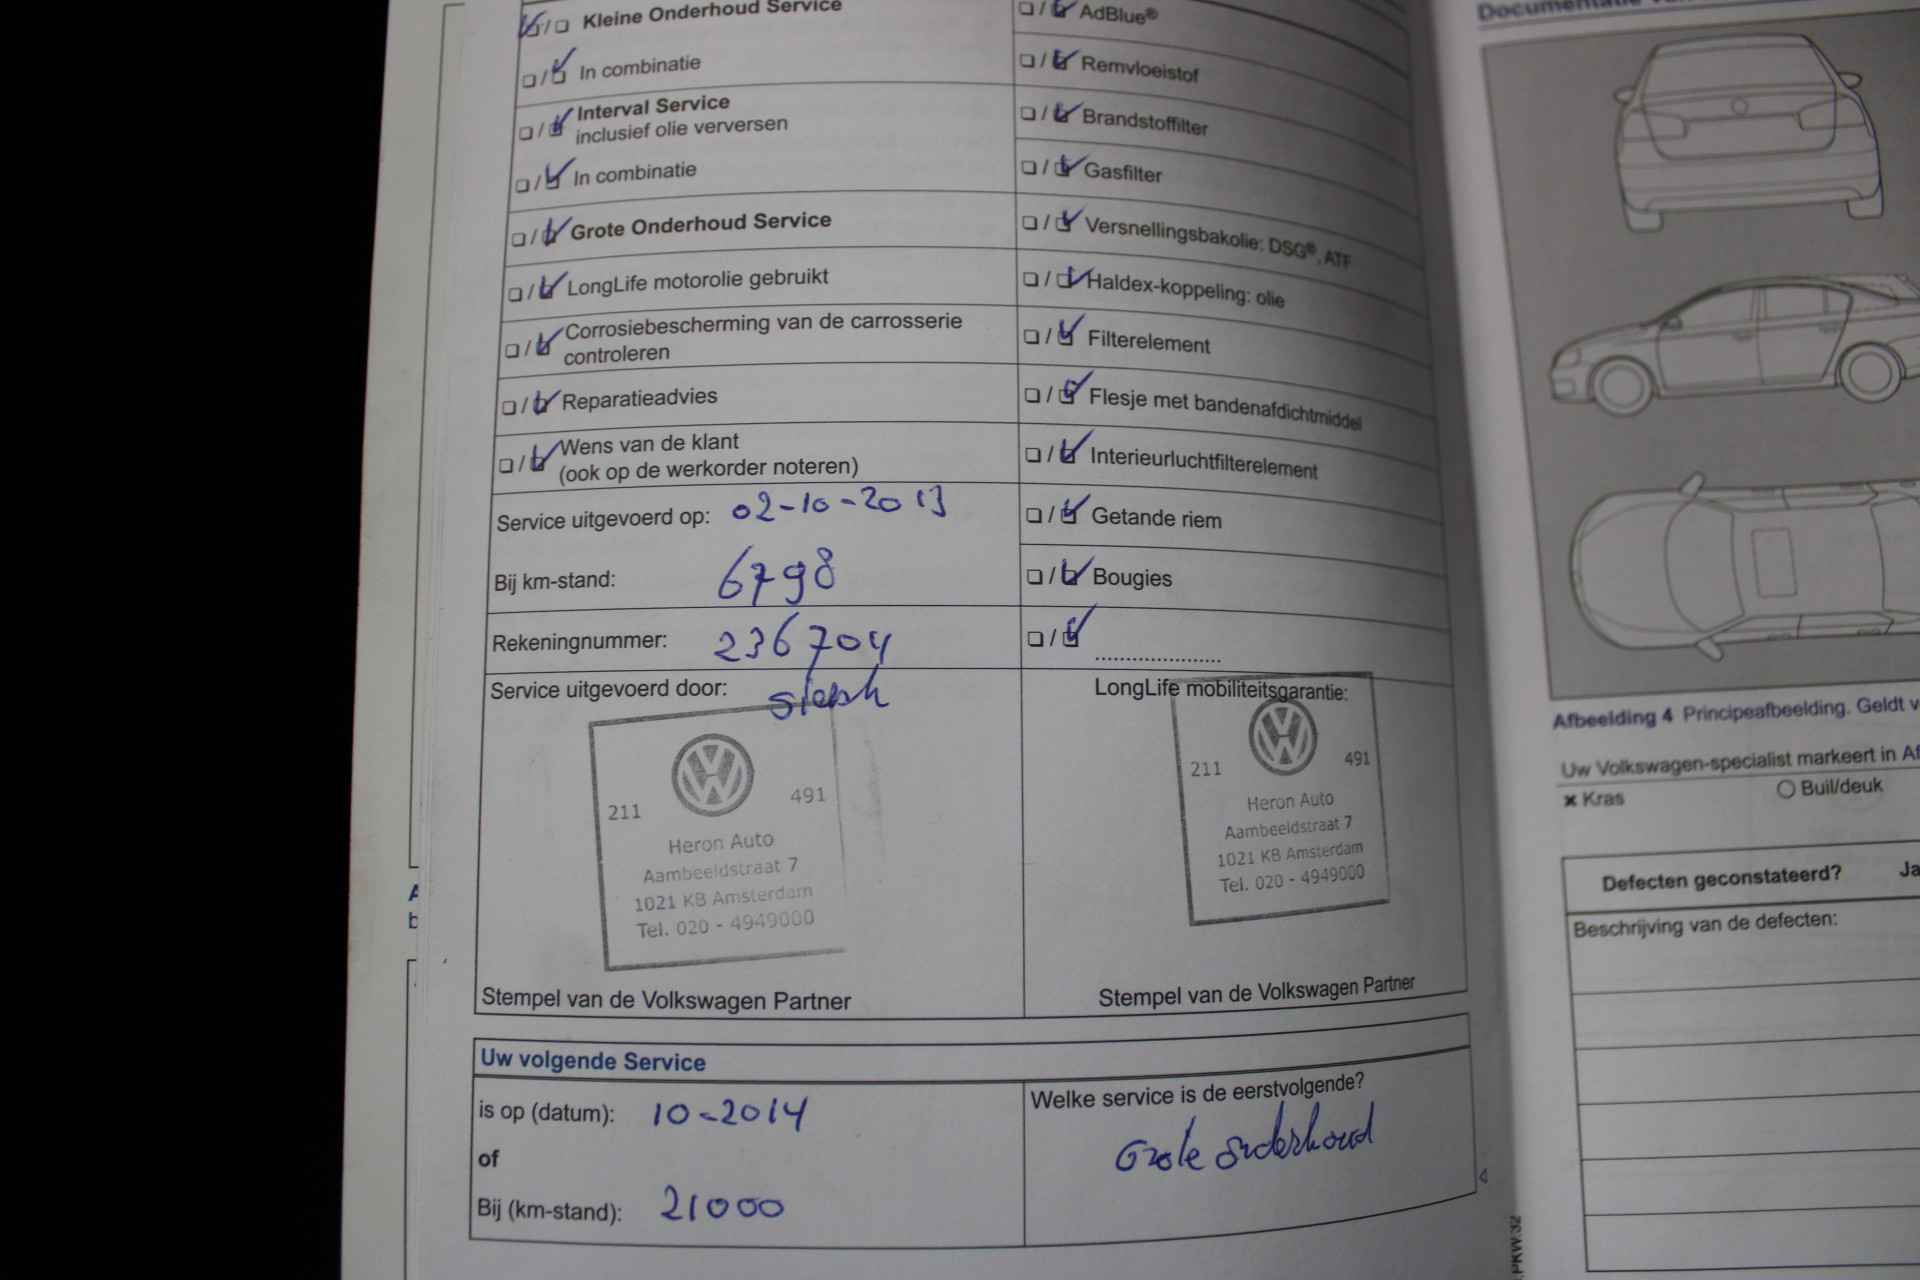 Kleine Onderhoud Service
In combinatie
Interval Service
inclusief olie verversen
In combinatie
Grote Onderhoud Service
LongLife motorolie gebruikt
Corrosiebescherming van de carrosserie
controleren
Reparatieadvies
Wens van de klant
(ook op de werkorder noteren)
Service uitgevoerd op: 02-10-2013
Bij km-stand: 6798
Rekeningnummer: 236704
Service uitgevoerd door:
211 491
Heron Auto
Aambeeldstraat 7
1021 KB Amsterdam
Tel. 020 - 4949000
Stempel van de Volkswagen Partner
AdBlue®
Remvloeistof
Brandstoffilter
Gasfilter
Versnellingsbakolie: DSG®, ATF
Haldex-koppeling: olie
Filterelement
Flesje met bandenafdichtmiddel
Interieurluchtfilterelement
Getande riem
Bougies
.....................
LongLife mobiliteitsgarantie:
211 491
Heron Auto
Aambeeldstraat 7
1021 KB Amsterdam
Tel. 020 - 4949000
Stempel van de Volkswagen Partner
Uw volgende Service
is op (datum): 10-2014
of
Bij (km-stand): 21000
Welke service is de eerstvolgende?
Grote onderhoud
Afbeelding 4 Principeafbeelding. Geldt v
Uw Volkswagen-specialist markeert in Af
Kras
Buil/deuk
Defecten geconstateerd? Ja
Beschrijving van de defecten: